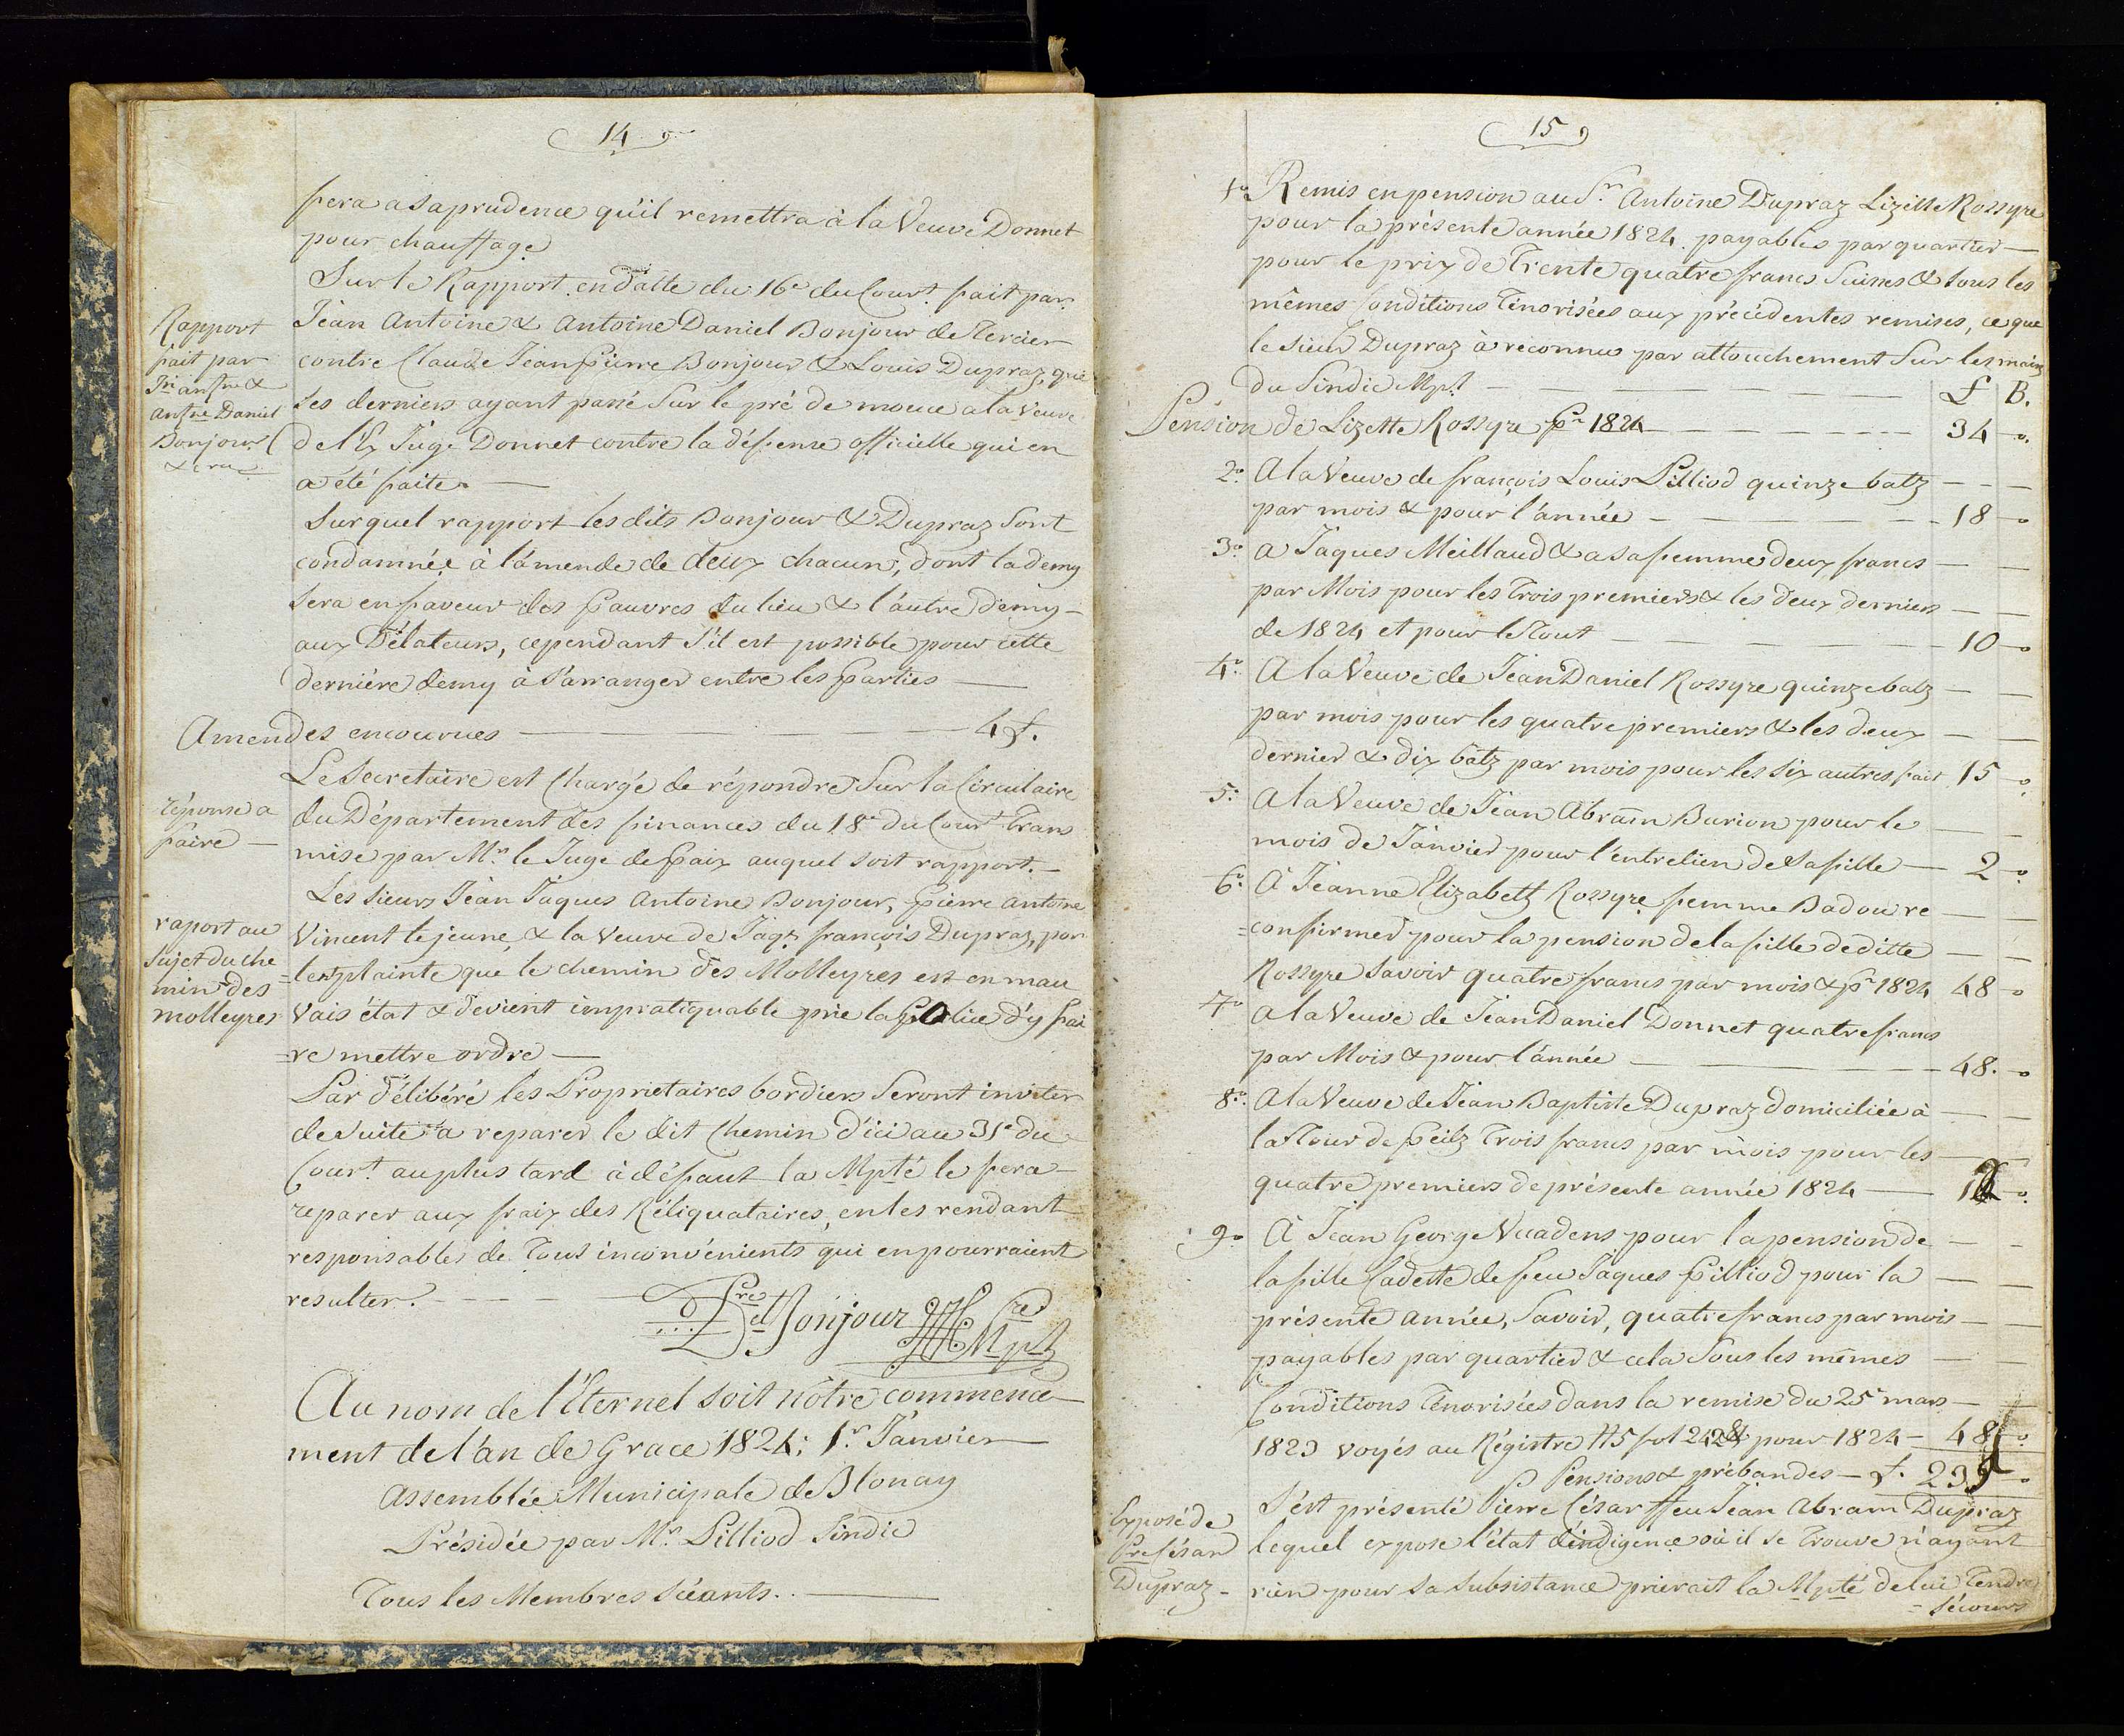 14
fera a sa prudence qu'il remettra à la Veuve Donnet
pour chauffage
Rapport
fait par
Jn antne &
antne Daniel
Bonjour
Sur le Rapport en datte du 16e du Court fait par
Jean Antoine & Antoine Daniel Bonjour de Tercier
contre Claude Jean Pierre Bonjour & Louis Dupraz, que
ses derniers ayant passé sur le pré de moue a la Veuve
de l'Ex Juge Donnet contre la défense officielle qui en
a été faite. —
Sur quel rapport les dits Bonjour & Dupraz sont
condamnée à l'amende de deux chacun, dont la demy
sera en faveur des Pauvres du lieu & l'autre demy
aux Délateurs, cependant s'il est possible pour cette
dernière demy à s'arranger entre les Parties —
Amendes encourues — 4 f.
réponse a
faire —
Le Secretaire est Chargé de répondre Sur la Circulaire
du Département des finances du 18e du Court Trans
mise par Mr le Juge de Paix auquel soit rapport. —
raport au
Sujet du che
min des
molleyres
Les Sieurs Jean Jaques Antoine Bonjour, Pierre Antoine
Vincent le jeune, & la Veuve de Jaqs françois Dupraz, por
=tent plainte que le chemin des Molleyres est en mau
vais état & devient impratiquable prie la Police d'y fai
=re mettre ordre —
Par délibéré les Proprietaires bordiers seront inviter
de suite a reparer le dit Chemin d'ici au 31e du
Court au plus tard à défaut la Mpté le fera
reparer aux fraix des Réliquataires, en les rendant
responsables de Tous inconvénients qui en pourraient
resulter. — — —
Bonjour Sre Mpl
Au nom de l'Eternel soit notre commence
ment de l'an de Grace 1824; 1er Janvier
Assemblée Municipale de Blonay
Présidée par Mr Pilliod Sindic
Tous les Membres Séeants. —
15
1o Remis en pension au Sr Antoine Dupraz Lizette Rossyre
pour la présente année 1824. payables par quartier —
pour le prix de Trente quatre francs Suisses & sous les
mêmes Conditions Ténorisées aux précédentes remises, ce que
le sieur Dupraz à reconnu par attouchement Sur les mains
du Sindic Mpl — — — £ B.
Pension de Lizette Rossyre pr 1824 — — — 34 - o.
2o A la Veuve de françois Louis Pilliod quinze batz — —
par mois & pour l'année — — — 18 - o
3o a Jaques Meillaud & a sa femme deux francs — —
par Mois pour les Trois premiers & les deux derniers — —
de 1824 et pour le Tout — — — 10 - o
4o A la Veuve de Jean Daniel Rossyre quinze batz — —
par mois pour les quatre premiers & les deux — —
dernier & dix batz par mois pour les six autres fait 15 - o
5o A la Veuve de Jean Abram Burion pour le — —
mois de Janvier pour l'entretien de sa fille — 2 - o
6o A Jeanne Elizabeth Rossyre femme Badou re — —
=confirmer pour la pension de la fille de ditte — —
Rossyre savoir quatre francs par mois & pr 1824 48 - o
7o A la Veuve de Jean Daniel Donnet quatre francs
par Mois & pour l'année — — — 48. - o
8o A la Veuve de Jean Baptiste Dupraz domiciliée à — —
la Tour de Peilz Trois francs par mois pour les — —
quatre premiers de présente année 1824 — 12 - o.
9o A Jean George Vuadens pour la pension de — —
la fille Cadette de feu Jaques Pilliod pour la — —
présente année, Savoir, quatre francs par mois — —
payables par quartier & cela Sous les mêmes — —
Conditions Ténorisées dans la remise du 25e mars — —
1823 voyés au Régistre pour 1824 — 48 - o
Pensions & prébandes — f. 235 - o
Exposé de
Pre César
Dupraz —
S'est présenté Pierre César ffeu Jean Abram Dupraz
lequel expose l'état d'indigence où il se Trouve n'ayant
rien pour sa subsistance prierait la Mpté de lui Tendre
= sécours